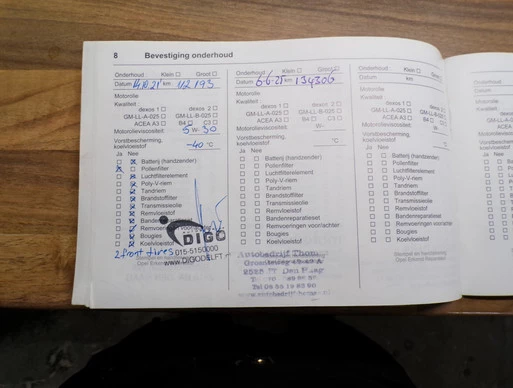 8 Bevestiging onderhoud
Onderhoud : Klein ☐ Groot ☐
Datum 14.10.21 km 112193
Motorolie
Kwaliteit :
dexos 1 ☐ dexos 2 ☐
GM-LL-A-025 ☐ GM-LL-B-025 ☐
ACEA A3 ☐ B4 ☐ C3 ☐
Motorolieviscositeit: 5 W- 30
Vorstbescherming,
koelvloeistof -40 °C
Ja Nee
Batterij (handzender)
Pollenfilter
Luchtfilterelement
Poly-V-riem
Tandriem
Brandstoffilter
Transmissieolie
Remvloeistof
Remvoeringen
Bougies
Koelvloeistof
2 front tires
DIGO
015-5150000
www.DIGODELFT
Onderhoud : Klein ☐ Groot ☐
Datum 6-6-25 km 134306
Motorolie
Kwaliteit :
dexos 1 ☐ dexos 2 ☐
GM-LL-A-025 ☐ GM-LL-B-025 ☐
ACEA A3 ☐ B4 ☐ C3 ☐
Motorolieviscositeit: W-
Vorstbescherming,
koelvloeistof °C
Ja Nee
Batterij (handzender)
Pollenfilter
Luchtfilterelement
Poly-V-riem
Tandriem
Brandstoffilter
Transmissieolie
Remvloeistof
Bandenreparatieset
Remvoeringen voor/achter
Bougies
Koelvloeistof
Autobedrijf
Onderhoud : Klein ☐ Groot
Datum km
Motorolie
Kwaliteit :
dexos 1 ☐ dexos 2 ☐
GM-LL-A-025 ☐ GM-LL-B-025 ☐
ACEA A3 ☐ B4 ☐ C3 ☐
Motorolieviscositeit: W-
Vorstbescherming,
koelvloeistof °C
Ja Nee
Batterij (handzender)
Pollenfilter
Luchtfilterelement
Poly-V-riem
Tandriem
Brandstoffilter
Transmissieolie
Remvloeistof
Bandenreparatieset
Remvoeringen voor/achter
Bougies
Koelvloeistof